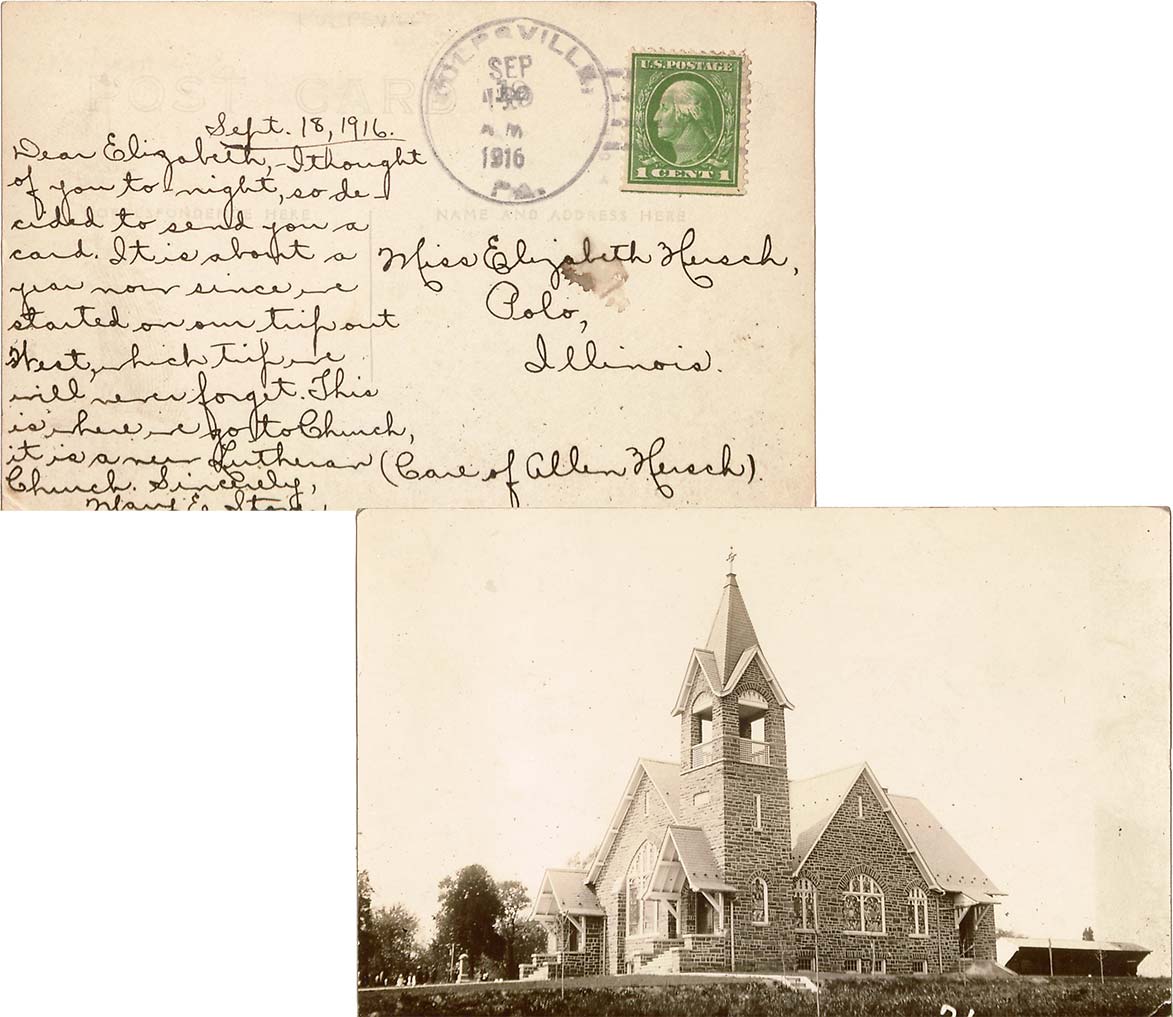 POST CARD
KULPSVILLE,
SEP
19
A M
1916
PA.
U.S. POSTAGE
1 CENT 1
Sept. 18, 1916.
Dear Elizabeth,- I thought
of you to-night, so de-
cided to send you a
card. It is about a
year now since we
started on our trip out
West, which trip we
will never forget. This
is where we go to Church,
it is a new Lutheran
Church. Sincerely,
Mary E.
CORRESPONDENCE HERE
NAME AND ADDRESS HERE
Miss Elizabeth Hersch,
Polo,
Illinois.
(Care of Allen Hersch).